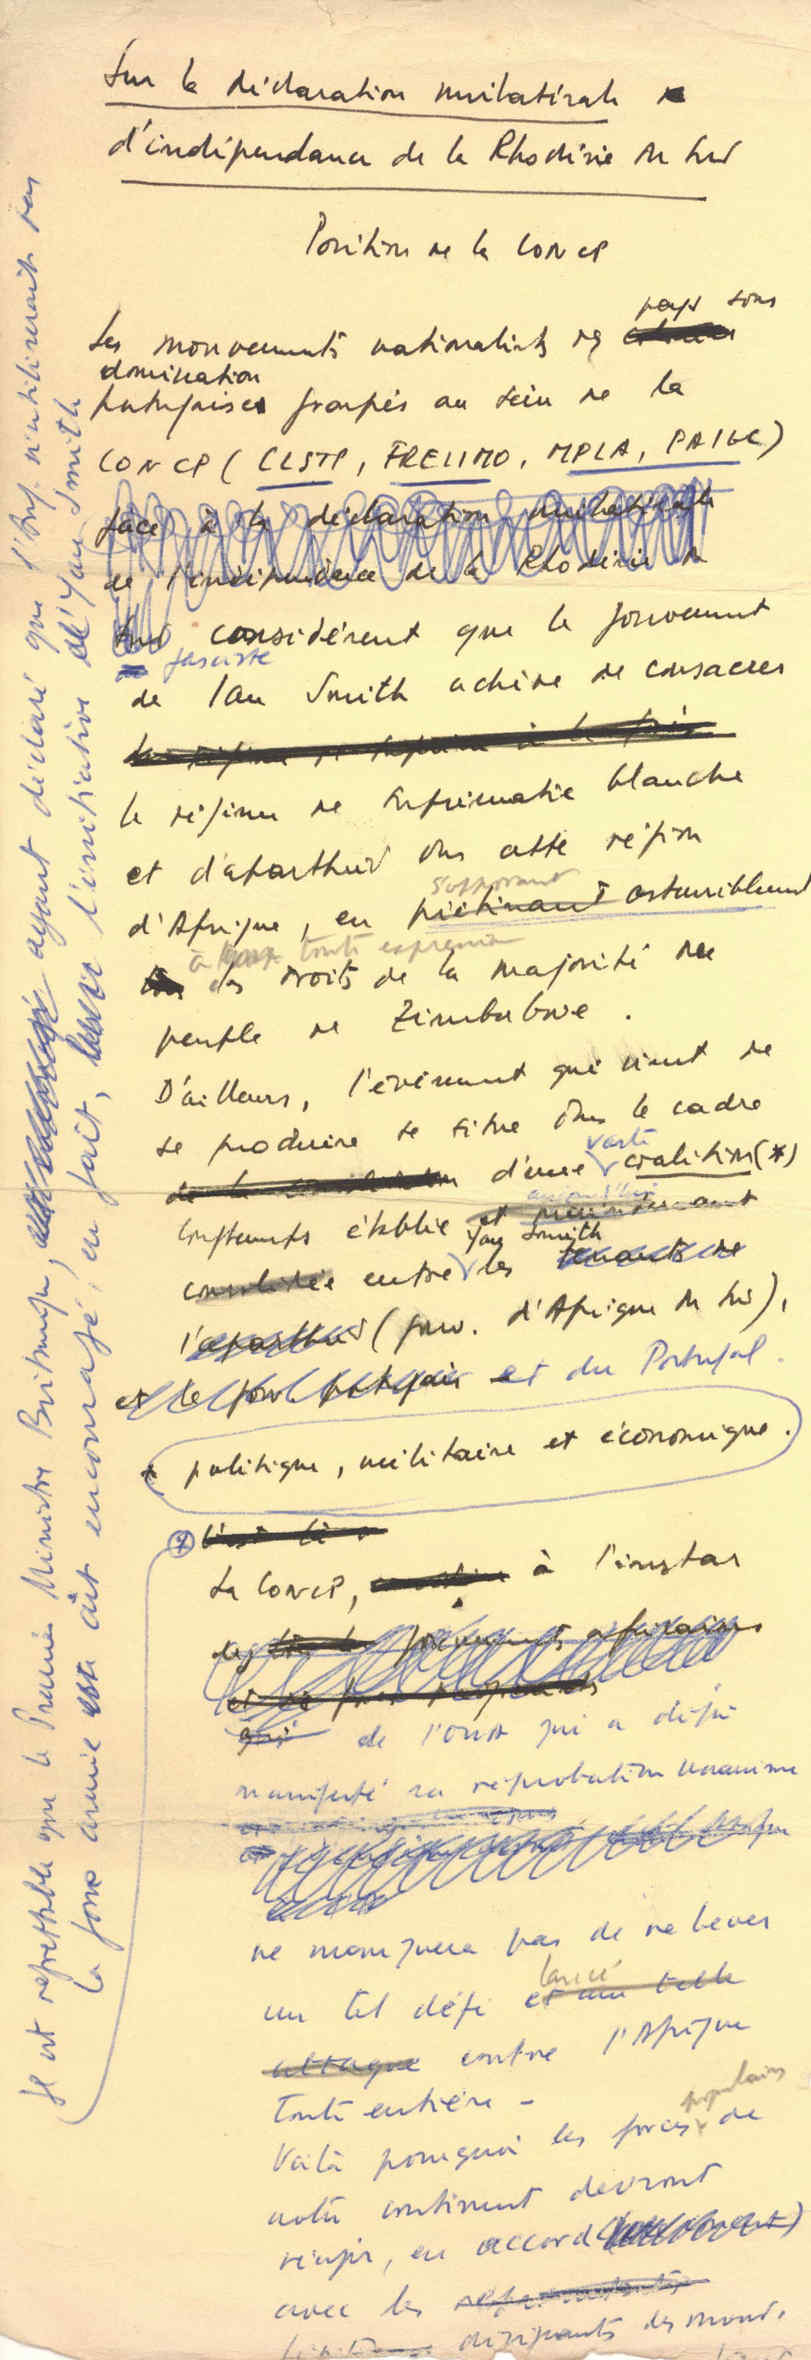 Sur la déclaration unilatérale
d'indépendance de la Rhodésie du Sud
Position de la CONCP
Les mouvements nationalistes des pays sous
domination
portugaise groupés au sein de la
CONCP (CLSTP, FRELIMO, MPLA, PAIGC)
face à la déclaration unilatérale
de l'indépendance de la Rhodésie du
Sud considèrent que le gouvernement
fasciste
de Ian Smith achève de consacrer
le régime de suprématie blanche
et d'apartheid dans cette région
supprimant
d'Afrique, en piétinant ostensiblement
à toute expression
les droits de la majorité du
peuple de Zimbabwe.
D'ailleurs, l'événement qui vient de
se produire se situe dans le cadre
vaste
d'une coalition (*)
aujourd'hui
longtemps établie et maintenant
Ian Smith
consolidée entre les tenants de
l'apartheid (gouv. d'Afrique du Sud),
et le gouv. portugais et du Portugal.
* politique, militaire et économique.
*
La CONCP, à l'instar
des gouvernements africains
qui de l'OUA qui a déjà
manifesté sa réprobation unanime
ne manquera pas de relever
lancé
un tel défi et une telle
attaque contre l'Afrique
toute entière -
populaires
Voilà pourquoi les forces de
notre continent devront
réagir, en accord
avec les
dirigeants des mouv.
Il est regrettable que le Premier Ministre Britannique, ayant déclaré que l'Ang. n'utiliserait pas
la force armée ait encouragé, en fait, l'initiative d'Ian Smith